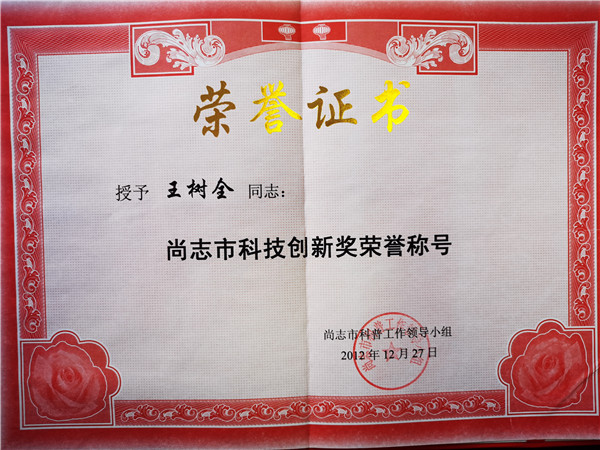 荣誉证书
授予 王树全 同志：
尚志市科技创新奖荣誉称号
尚志市科普工作领导小组
2012年12月27日